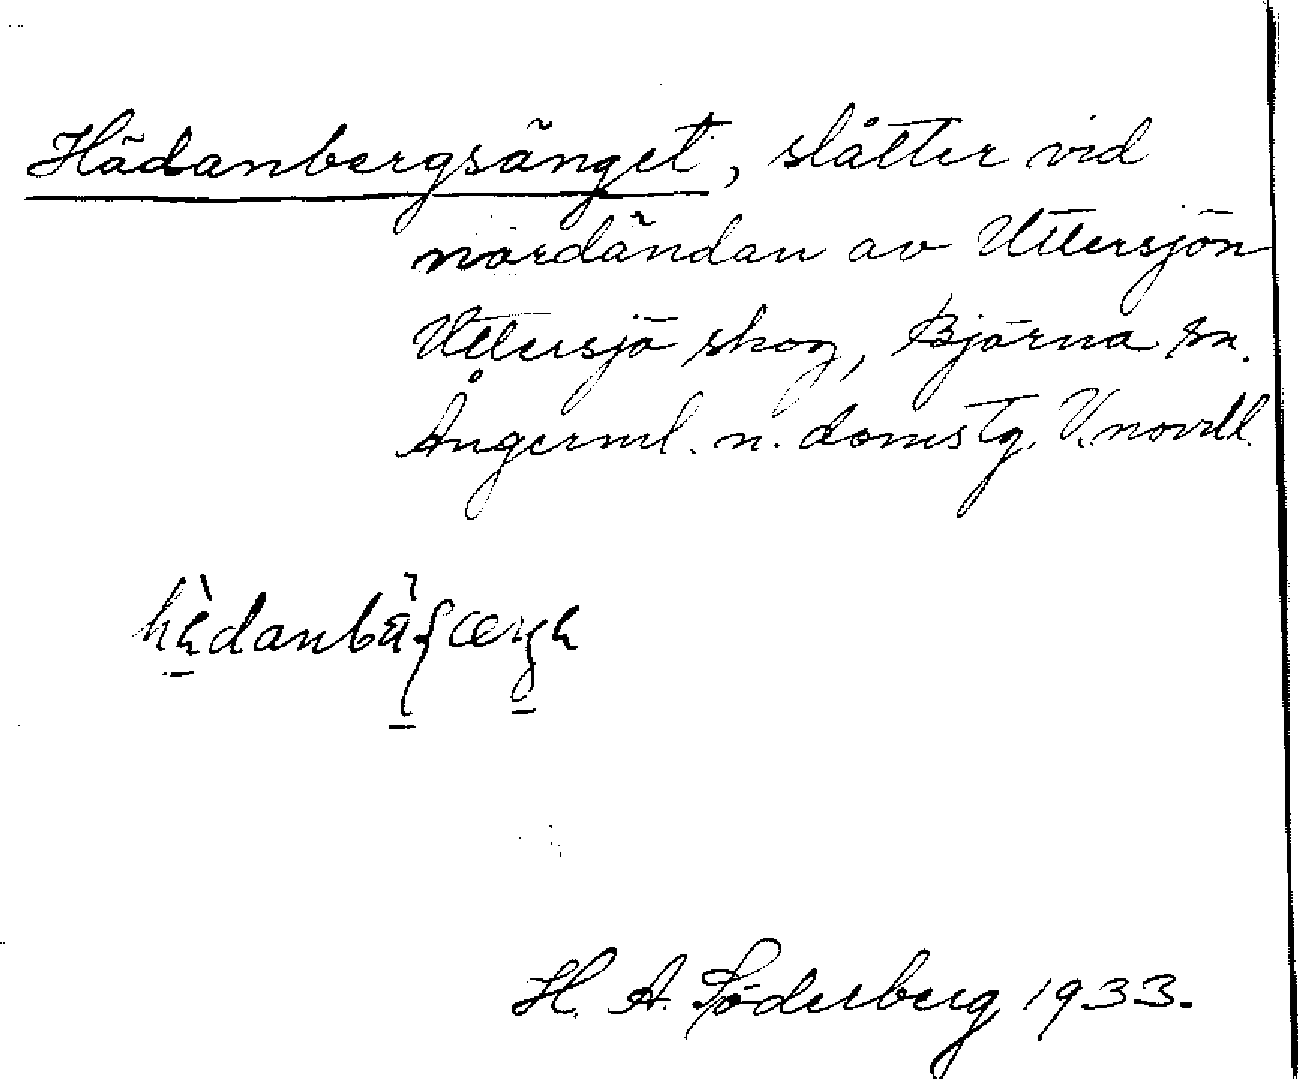 Hädanbergsänget, slåtter vid
nordändan av Uttersjön
Uttersjö skog, Björna sn.
Ångerml. n. domstg. V.norrll.
H. A. Söderberg 1933.